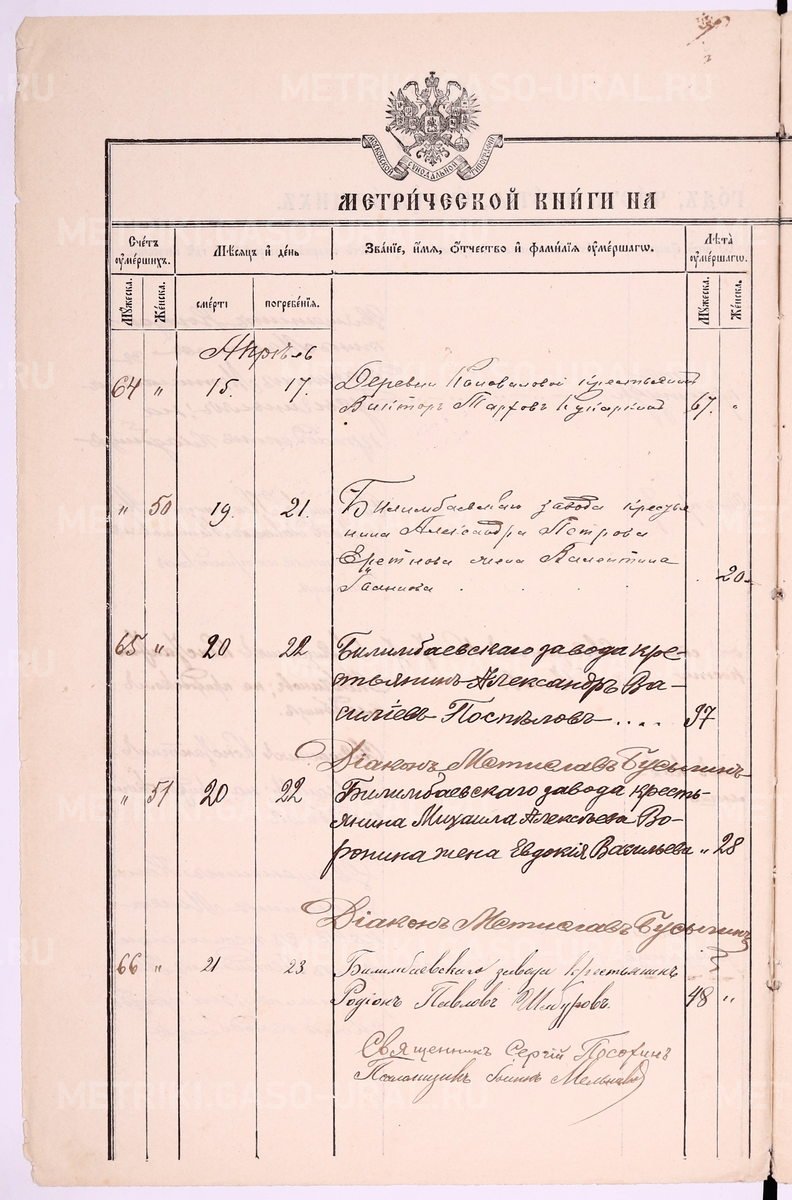 METRIKI.GASO-URAL.RU
МОСКОВСКОЙ СѴНОДАЛЬНОЙ ТИПОГРАФІИ
МЕТРИ́ЧЕСКОЙ КНИ́ГИ НА
Сче́тъ ᲂу҆ме́ршихъ.
Мѣсяцъ и҆ де́нь
Зва́ніе, и҆́мя, ѻ҆́тчество и҆ фами́лія ᲂу҆ме́ршагѡ.
Лѣ́та ᲂу҆ме́ршагѡ.
Мꙋ́жеска. Же́нска. сме́рти погребе́нія. Мꙋ́жеска. Же́нска.
Апрѣль
64 " 15. 17. Деревни Коноваловой крестьянинъ
Викторъ Тарховъ Кукаркинъ 67. "
" 50 19. 21. Билимбаевскаго завода крестья
нина Александра Петрова
жена Валентина
Іоаннова 20
65 " 20 22 Билимбаевскаго завода кре-
стьянинъ Александръ Ва-
силіевъ Поспѣловъ 37
Діаконъ Мстиславъ Бусыгинъ
" 51 20 22 Билимбаевскаго завода кресть-
янина Михаила Алексѣева Во-
ронина жена Евдокія Васильева " 28
Діаконъ Мстиславъ Бусыгинъ
66 " 21 23 Билимбаевскаго завода крестьянинъ
Родіонъ Павловъ 48 "
Священникъ Сергій
Псаломщикъ